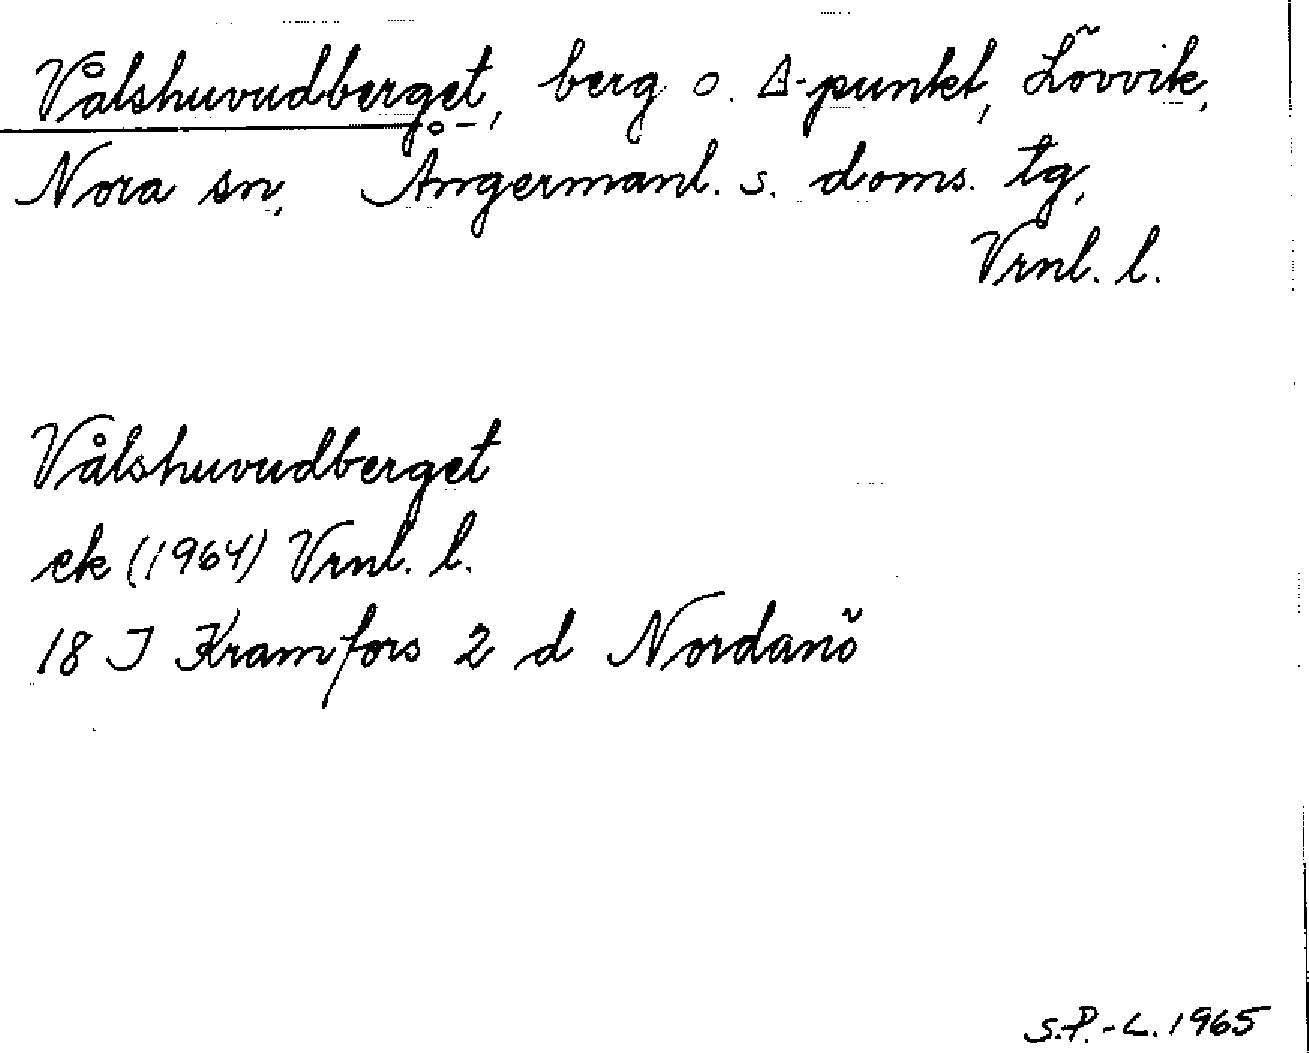 Vålshuvudberget, berg o. Δ-punkt, Lövvik,
Nora sn, Ångermanl. s. doms. tg,
Vrnl. l.
Vålshuvudberget
ek (1964) Vrnl. l.
18 J Kramfors 2 d Nordanö
S.P.-L. 1965